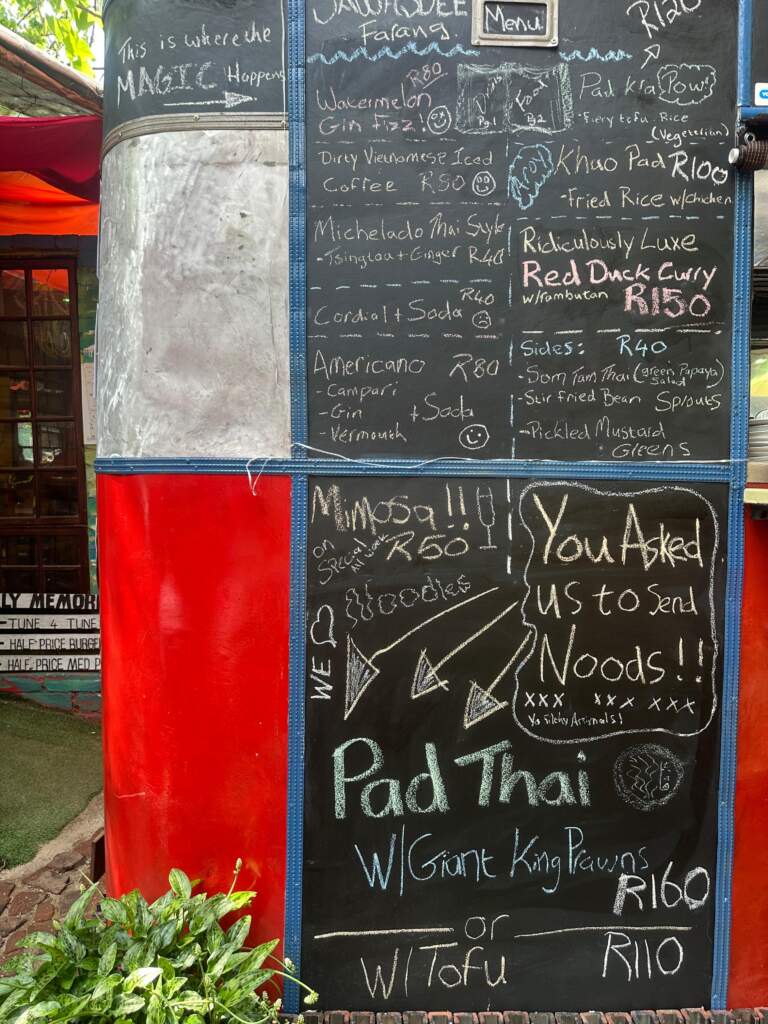 This is where the
MAGIC Happens
SAWASDEE
Farang
Menu
R120
R80
Watermelon
Gin Fizz!
Drinks
Pg.1
Food
Pg 2
Pad Kra Pow!
- Fiery tofu Rice
(Vegetarian)
Dirty Vietnamese Iced
Coffee R50
Aroy
Khao Pad R100
- Fried Rice w/chicken
Michelado Thai Style
- Tsingtao + Ginger R40
Ridiculously Luxe
Red Duck Curry
w/rambutan R150
R40
Cordial + Soda
Americano R80
- Campari
- Gin + Soda
- Vermouth
Sides: R40
- Som Tam Thai (green Papaya
Salad)
- Stir Fried Bean Sprouts
- Pickled Mustard
Greens
Mimosa!!
on
Special
All week
R50
Noodles
WE
You Asked
us to Send
Noods!!
xxx xxx xxx
Ya Filthy Animals!
Pad Thai
W/Giant King Prawns
R160
or
W/Tofu R110
LY MEMOR
- TUNE 4 TUNE
- HALF PRICE BURGE
- HALF PRICE MED P